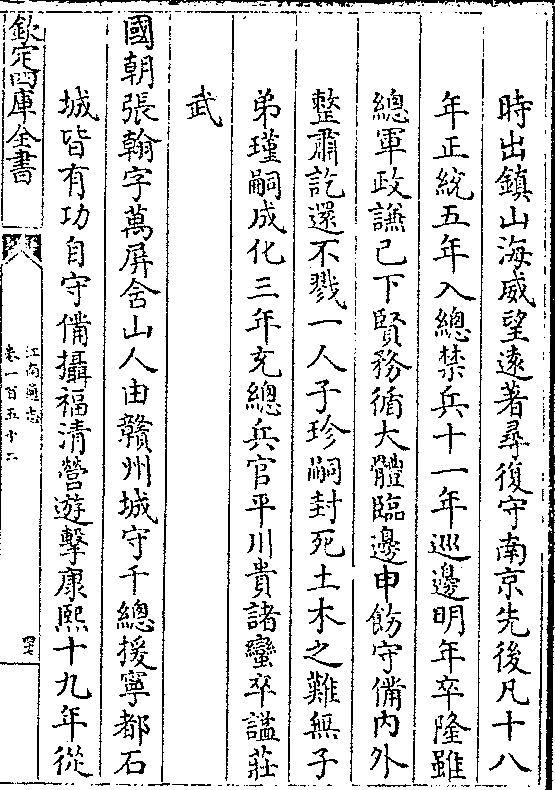 時出鎮山海威望遠著尋復守南京先後凡十八
年正統五年入總禁兵十一年巡邊明年卒隆雖
總軍政謙己下賢務循大體臨邊申飭守備内外
整肅訖還不戮一人子珍嗣封死土木之難無子
弟瑾嗣成化三年充總兵官平川貴諸蠻卒諡莊
武
國朝張翰字萬屏含山人由贛州城守千總援寧都石
城皆有功自守備攝福清營遊擊康熙十九年從
欽定四庫全書
江南通志
卷一百五十二